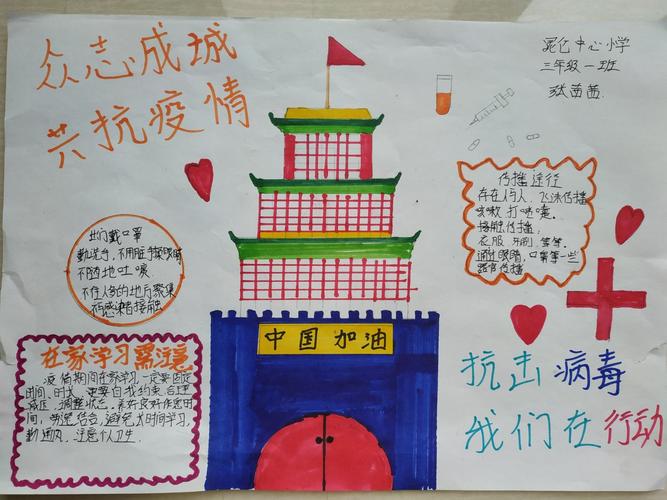 众志成城
共抗疫情
昆仑中心小学
三年级一班
张茜茜
出门戴口罩
勤洗手，不用脏手揉眼睛
不随地吐痰
不在人多的地方聚集
不与感染者接触
传播途径
存在人与人、飞沫传播
咳嗽 打喷嚏.
接触传播:
衣服、牙刷、等等.
通过眼睛，口鼻等一些
器官传播
在家学习需注意
疫情期间在家学习一定要固定
时间、时长，更要自我约束，合理
减压，调整状态，养好良好作息时
间，劳逸结合，避免长时间学习，
勤通风，注意个人卫生.
中国加油
抗击病毒
我们在行动